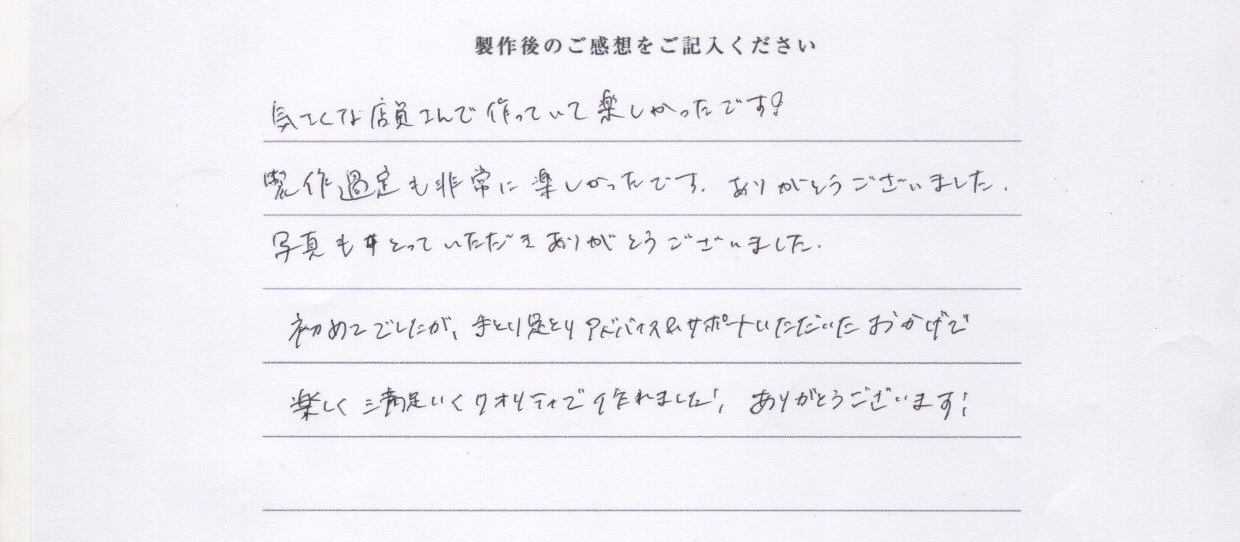 製作後のご感想をご記入ください
気さくな店員さんで作っていて楽しかったです!
製作過定も非常に楽しかったです. ありがとうございました.
写真もとっていただきありがとうございました.
初めてでしたが, 手とり足とりアドバイス&サポートいただいたおかげで
楽しく満足いくクオリティで作れました!, ありがとうございます!